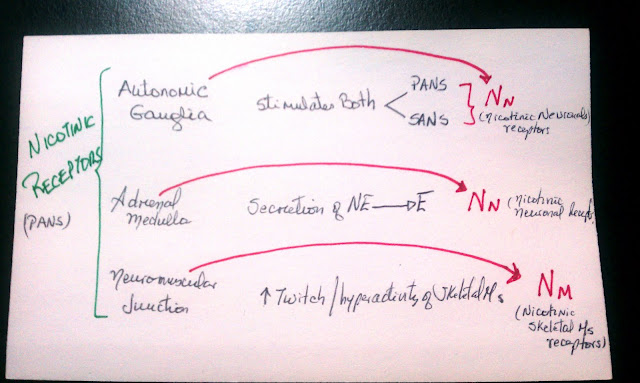 NICOTINIC
RECEPTORS
(PANS)
Autonomic
Ganglia
Stimulates Both
PANS
SANS
NN
(Nicotinic Neuronal)
receptors
Adrenal
Medulla
Secretion of NE → E
NN (Nicotinic
Neuronal Recepts.
Neuromuscular
Junction
↑ Twitch / hyperactivity of Skeletal Ms
NM
(Nicotinic
Skeletal Ms
receptors)